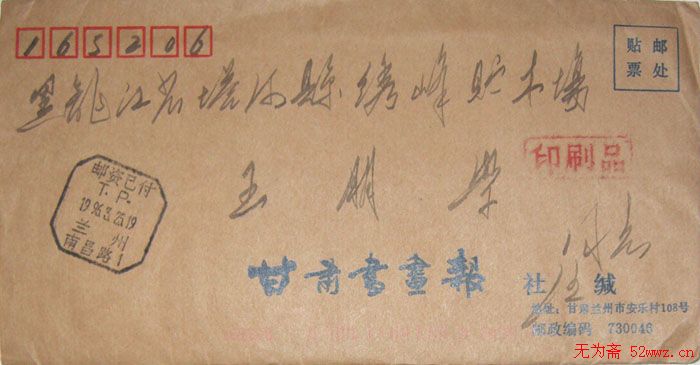 165206
贴邮
票处
黑龙江省塔河縣绣峰贮木場
印刷品
王明学
同志
收
邮资已付
T. P.
1996.3.25.19
兰州
南昌路1
甘肃书画报 社 缄
地址：甘肃兰州市安乐村108号
邮政编码 730046
无为斋 52wwz.cn